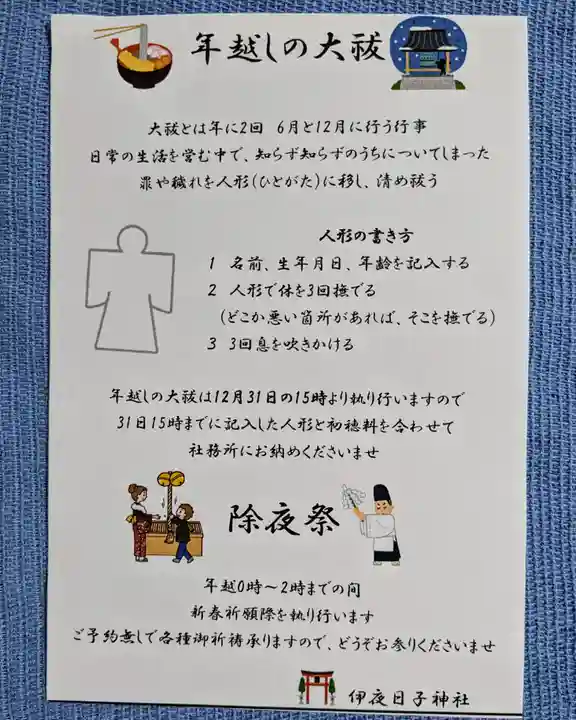 年越しの大祓
大祓とは年に2回 6月と12月に行う行事
日常の生活を営む中で、知らず知らずのうちについてしまった
罪や穢れを人形(ひとがた)に移し、清め祓う
人形の書き方
1 名前、生年月日、年齢を記入する
2 人形で体を3回撫でる
(どこか悪い箇所があれば、そこを撫でる)
3 3回息を吹きかける
年越しの大祓は12月31日の15時より執り行いますので
31日15時までに記入した人形と初穂料を合わせて
社務所にお納めくださいませ
除夜祭
年越0時~2時までの間
新春祈願際を執り行います
ご予約無しで各種御祈祷承りますので、どうぞお参りくださいませ
伊夜日子神社